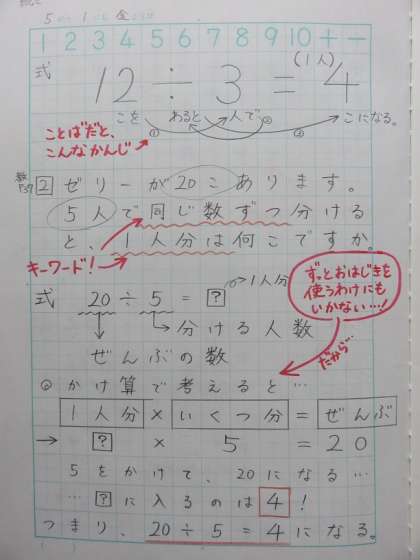 1 2 3 4 5 6 7 8 9 10 + −
式
(1人)
12 ÷ 3 = 4
こを わると 人で こになる。
① ② ③
ことばだと、
こんなかんじ
2 ゼリーが20こあります。
5人で同じ数ずつ分ける
と、1人分は何こですか。
キーワード!
→1人分
式 20÷5=?
分ける人数
ぜんぶの数
ずっとおはじきを
使うわけにも
いかない…!
だから…
かけ算で考えると…
1人分×いくつ分=ぜんぶ
→ ? × 5 = 20
5をかけて、20になる…
…?に入るのは4!
つまり、20÷5=4になる。